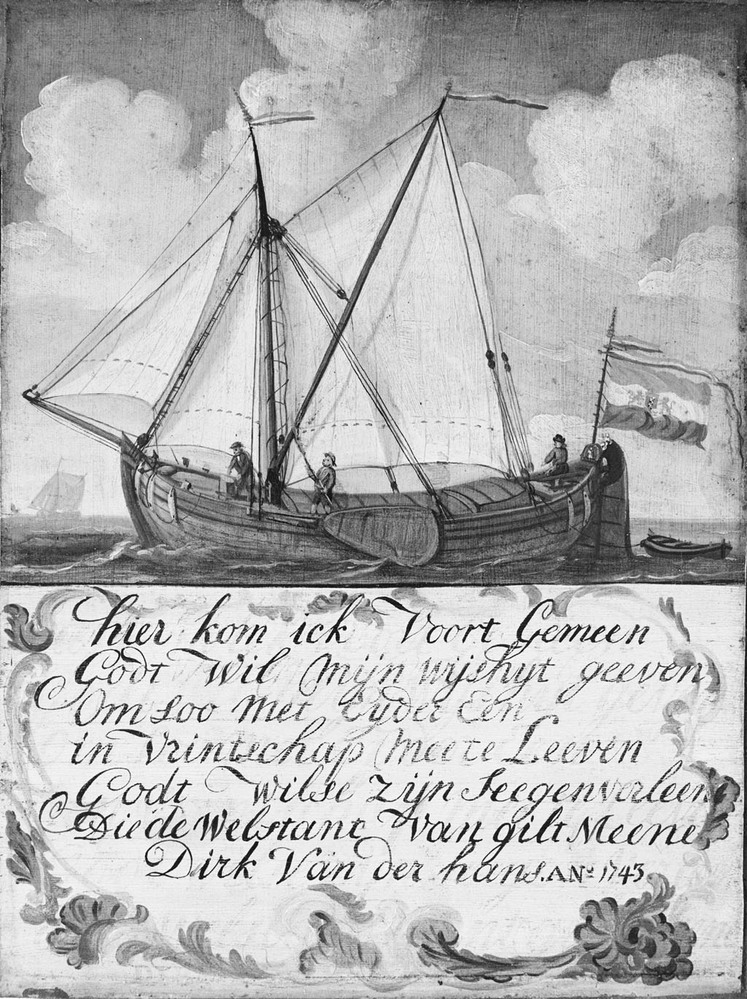 hier kom ick Voort Gemeen
Godt Wil Mijn Wijshyt geeven
Om Soo Met Eyder Een
in Vrintschap Mee te Leeven
Godt Wilse Zijn Seegen verleene
Die de Welstant Van gilt Meene
Dirk Van der hans. ANº 1743